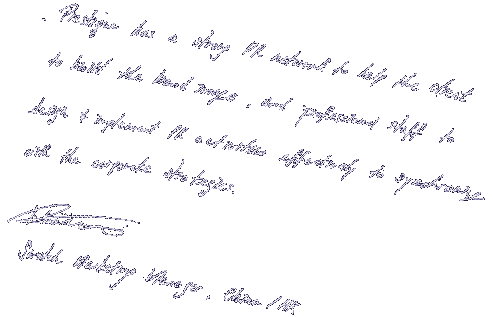 . Prestige has a strong PR network to help the client
to build the brand images, and professional staff to
design & implement PR activities effectively to synchronize
with the corporate strategies.
Senior Marketing Manager, China / HK